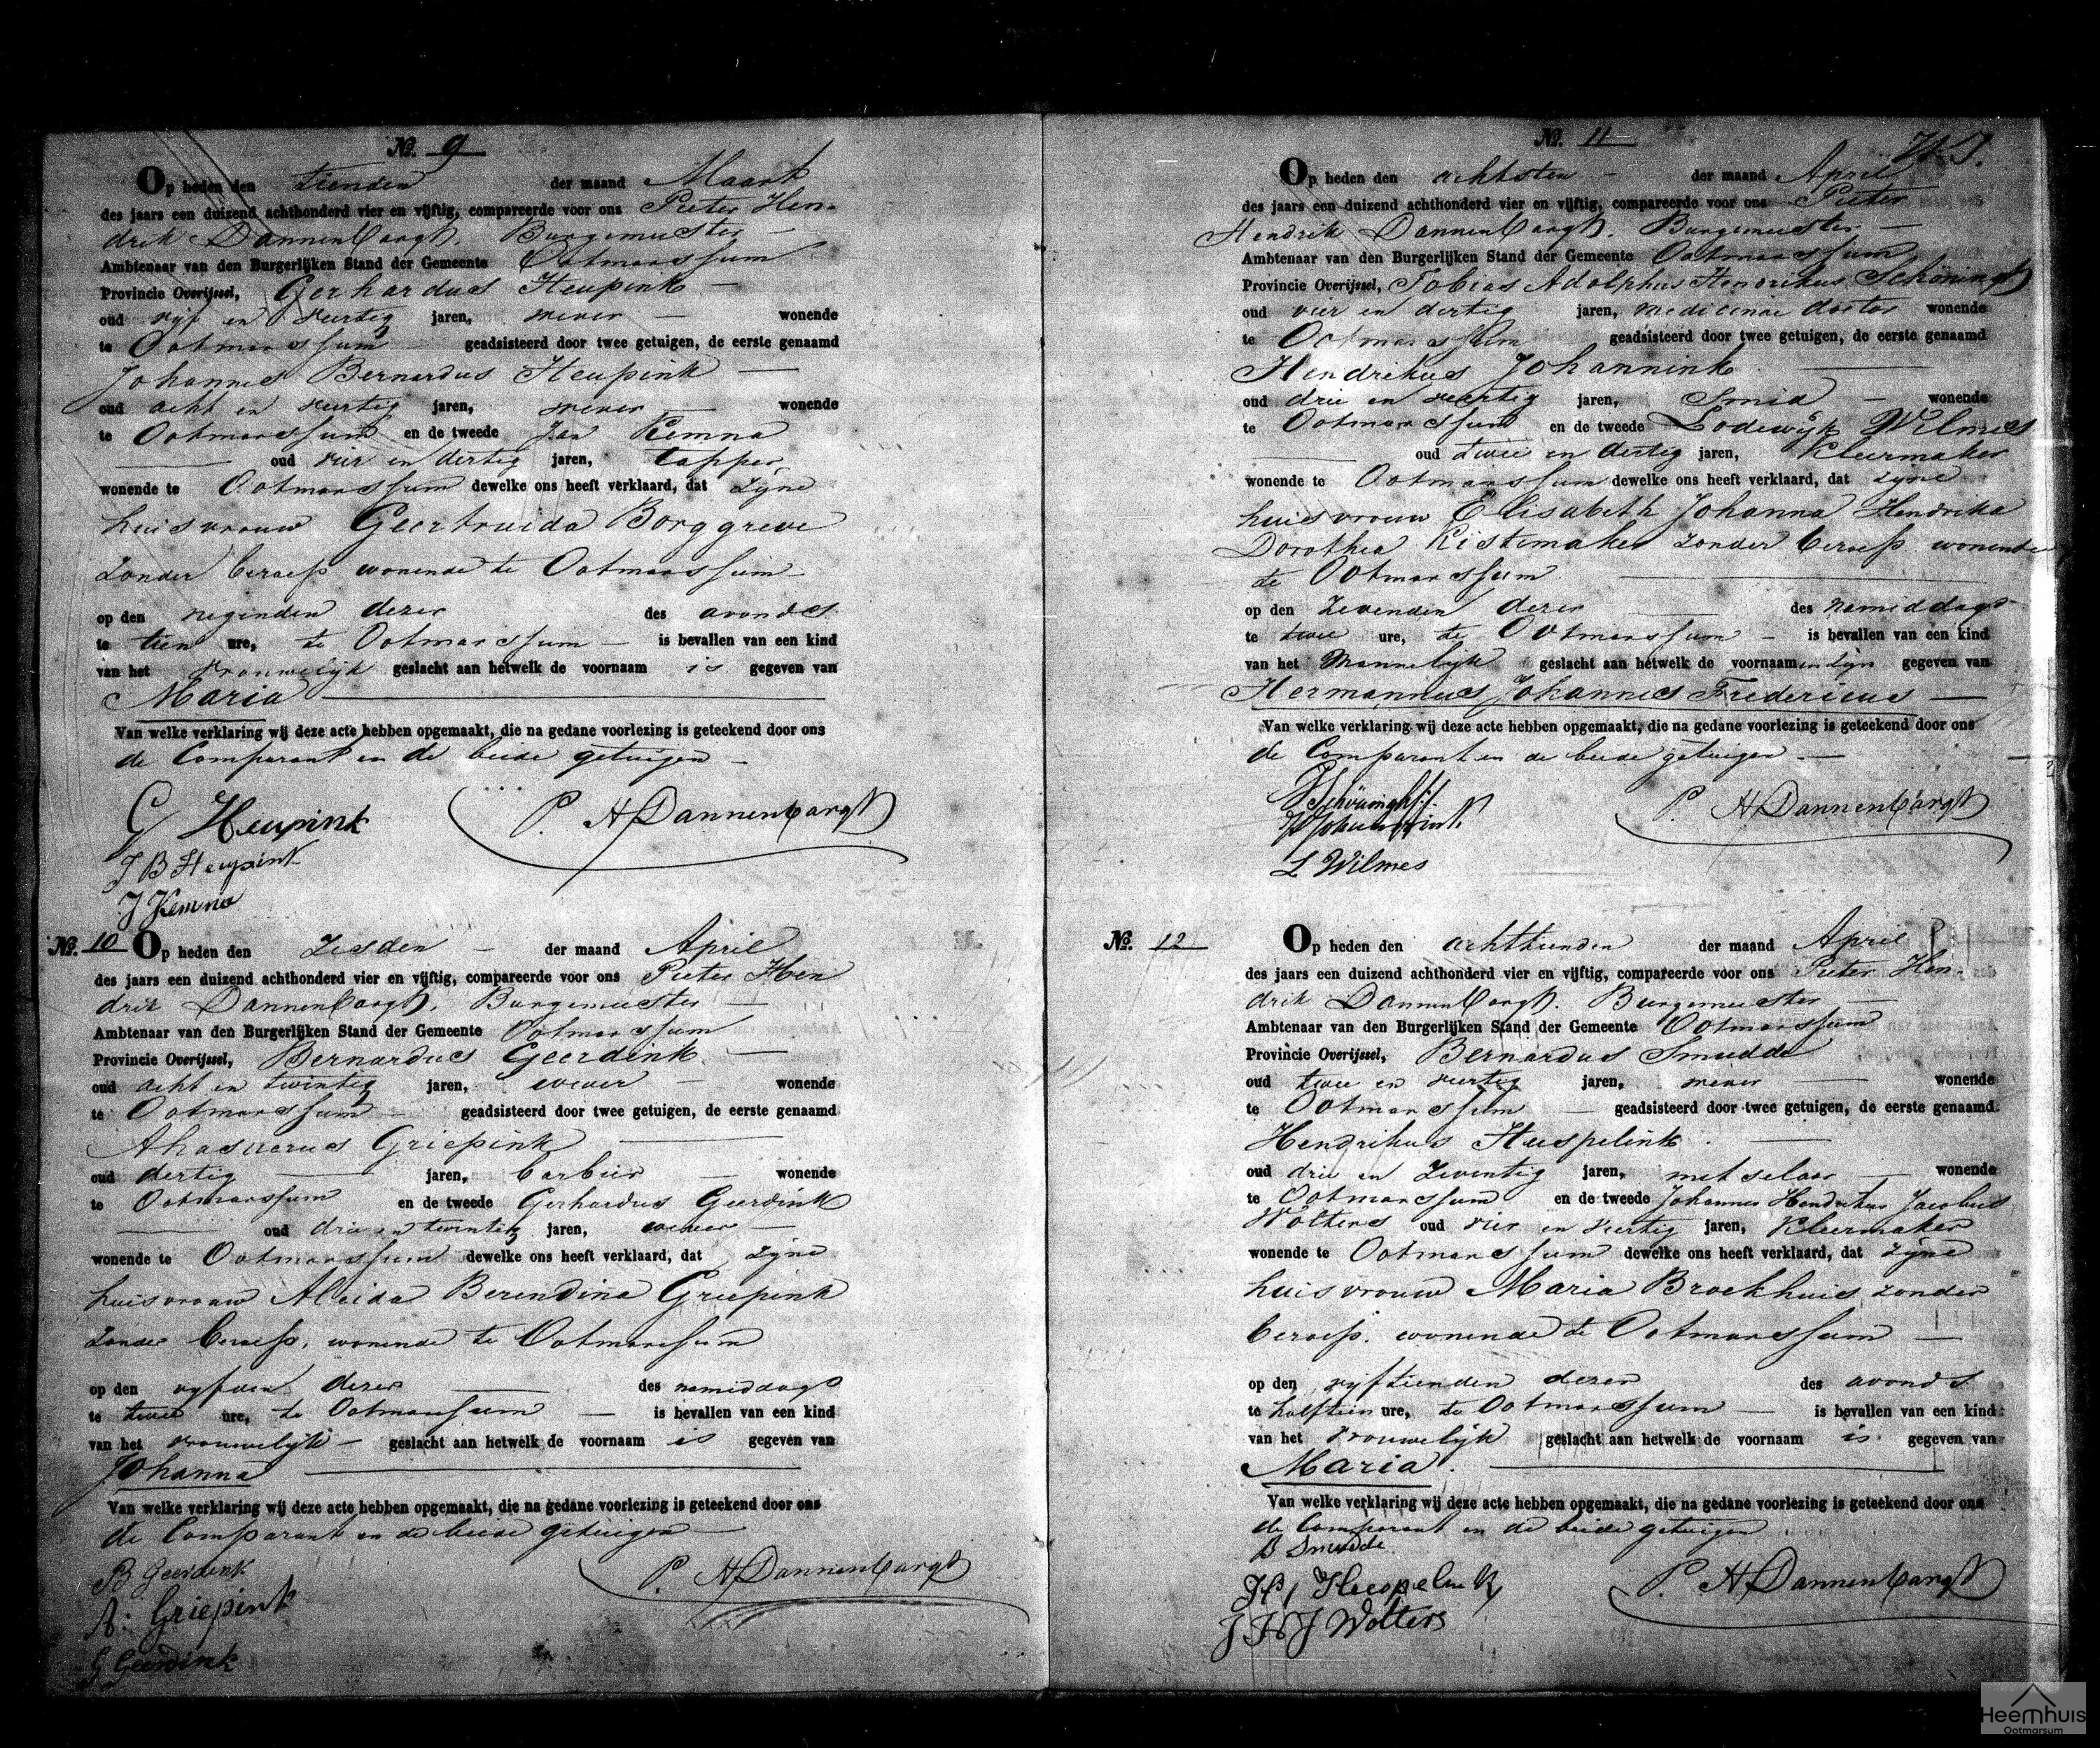 No. 9
Op heden den tienden der maand Maart
des jaars een duizend achthonderd vier en vijftig, compareerde voor ons Pieter Hen-
drik Dannenbargh, Burgemeester
Ambtenaar van den Burgerlijken Stand der Gemeente Ootmarssum
Provincie Overijssel, Gerhardus Heupink
oud vijf en veertig jaren, wever wonende
te Ootmarssum geadsisteerd door twee getuigen, de eerste genaamd
Johannes Bernardus Heupink
oud acht en veertig jaren, wever wonende
te Ootmarssum en de tweede Jan Kemna
oud vier en dertig jaren, tapper
wonende te Ootmarssum dewelke ons heeft verklaard, dat zijne
huisvrouw Geertruida Borggreve
zonder beroep wonende te Ootmarssum
op den negenden dezer des avonds
te tien ure, te Ootmarssum is bevallen van een kind
van het vrouwelijk geslacht aan hetwelk de voornaam is gegeven van
Maria
Van welke verklaring wij deze acte hebben opgemaakt, die na gedane voorlezing is geteekend door ons
de Comparant en de beide getuigen
G Heupink
P. H Dannenbargh
J B Heupink
J Kemna
No. 10 Op heden den zesden der maand April
des jaars een duizend achthonderd vier en vijftig, compareerde voor ons Pieter Hen
drik Dannenbargh, Burgemeester
Ambtenaar van den Burgerlijken Stand der Gemeente Ootmarssum
Provincie Overijssel, Bernardus Geerdink
oud acht en twintig jaren, wever wonende
te Ootmarssum geadsisteerd door twee getuigen, de eerste genaamd
Ahasuerus Griepink
oud dertig jaren, barbier wonende
te Ootmarssum en de tweede Gerhardus Geerdink
oud drie en twintig jaren, wever
wonende te Ootmarssum dewelke ons heeft verklaard, dat zijne
huisvrouw Aleida Berendina Griepink
zonder beroep, wonende te Ootmarssum
op den vyfden dezer des namiddags
te twee ure, te Ootmarssum is bevallen van een kind
van het vrouwelijk geslacht aan hetwelk de voornaam is gegeven van
Johanna
Van welke verklaring wij deze acte hebben opgemaakt, die na gedane voorlezing is geteekend door ons
de Comparant en de beide getuigen
B Geerdink
P. H Dannenbargh
A: Griepink
G Geerdink
No. 11
Op heden den achtsten der maand April
des jaars een duizend achthonderd vier en vijftig, compareerde voor ons Pieter
Hendrik Dannenbargh, Burgemeester
Ambtenaar van den Burgerlijken Stand der Gemeente Ootmarssum
Provincie Overijssel, Tobias Adolphus Henrikus Schöningh
oud vier en dertig jaren, medicinae doctor wonende
te Ootmarssum geadsisteerd door twee getuigen, de eerste genaamd
Hendrikus Johannink
oud drie en veertig jaren, Smid wonende
te Ootmarssum en de tweede Lodewijk Wilmes
oud twee en dertig jaren, Kleermaker
wonende te Ootmarssum dewelke ons heeft verklaard, dat zijne
huisvrouw Elisabeth Johanna Hendrika
Dorothea Kistemaker zonder beroep wonende
te Ootmarssum
op den zevenden dezer des namiddags
te twee ure, te Ootmarssum is bevallen van een kind
van het Mannelijk geslacht aan hetwelk de voornaamen zijn gegeven van
Hermannus Johannes Fredericus
Van welke verklaring wij deze acte hebben opgemaakt, die na gedane voorlezing is geteekend door ons
de Comparant en de beide getuigen
Schöningh
P. H Dannenbargh
H Johannink
L Wilmes
No. 12 Op heden den achttienden der maand April
des jaars een duizend achthonderd vier en vijftig, compareerde voor ons Pieter Hen-
drik Dannenbargh, Burgemeester
Ambtenaar van den Burgerlijken Stand der Gemeente Ootmarssum
Provincie Overijssel, Bernardus Smudde
oud twee en veertig jaren, wever wonende
te Ootmarssum geadsisteerd door twee getuigen, de eerste genaamd
Hendrikus Heupelink
oud drie en zeventig jaren, metselaar wonende
te Ootmarssum en de tweede Johannes Hendrikus Jacobus
Wolters oud vier en veertig jaren, Kleermaker
wonende te Ootmarssum dewelke ons heeft verklaard, dat zijne
huisvrouw Maria Broekhuis zonder
beroep, wonende te Ootmarssum
op den vijftienden dezer des avonds
te half tien ure, te Ootmarssum is bevallen van een kind
van het vrouwelijk geslacht aan hetwelk de voornaam is gegeven van
Maria
Van welke verklaring wij deze acte hebben opgemaakt, die na gedane voorlezing is geteekend door ons
de Comparant en de beide getuigen
B Smudde
P. H Dannenbargh
J H J Wolters
Heemhuis
Ootmarsum